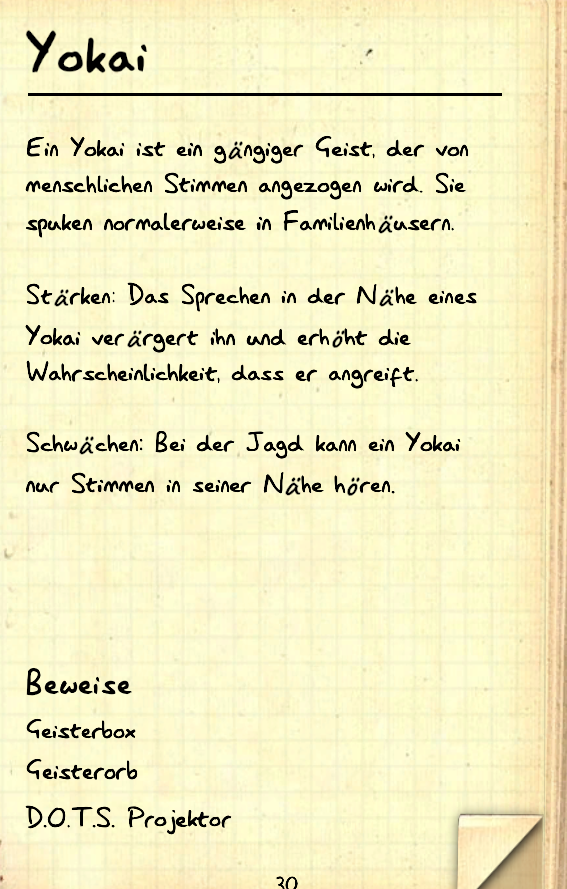 Yokai
Ein Yokai ist ein gängiger Geist, der von
menschlichen Stimmen angezogen wird. Sie
spuken normalerweise in Familienhäusern.
Stärken: Das Sprechen in der Nähe eines
Yokai verärgert ihn und erhöht die
Wahrscheinlichkeit, dass er angreift.
Schwächen: Bei der Jagd kann ein Yokai
nur Stimmen in seiner Nähe hören.
Beweise
Geisterbox
Geisterorb
D.O.T.S. Projektor
30